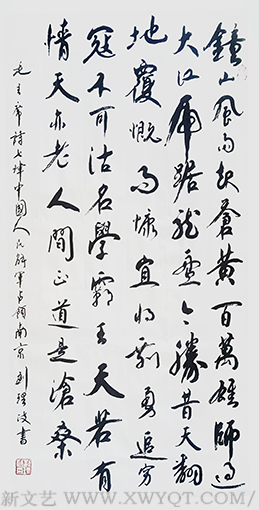 鐘山風雨起蒼黃百萬雄師過
大江虎踞龍盤今勝昔天翻
地覆慨而慷宜將剩勇追穷
寇不可沽名學霸王天若有
情天亦老人間正道是滄桑
毛主席詩七律中國人民解軍占領南京 書
新文艺 www.XWYQT.COM/